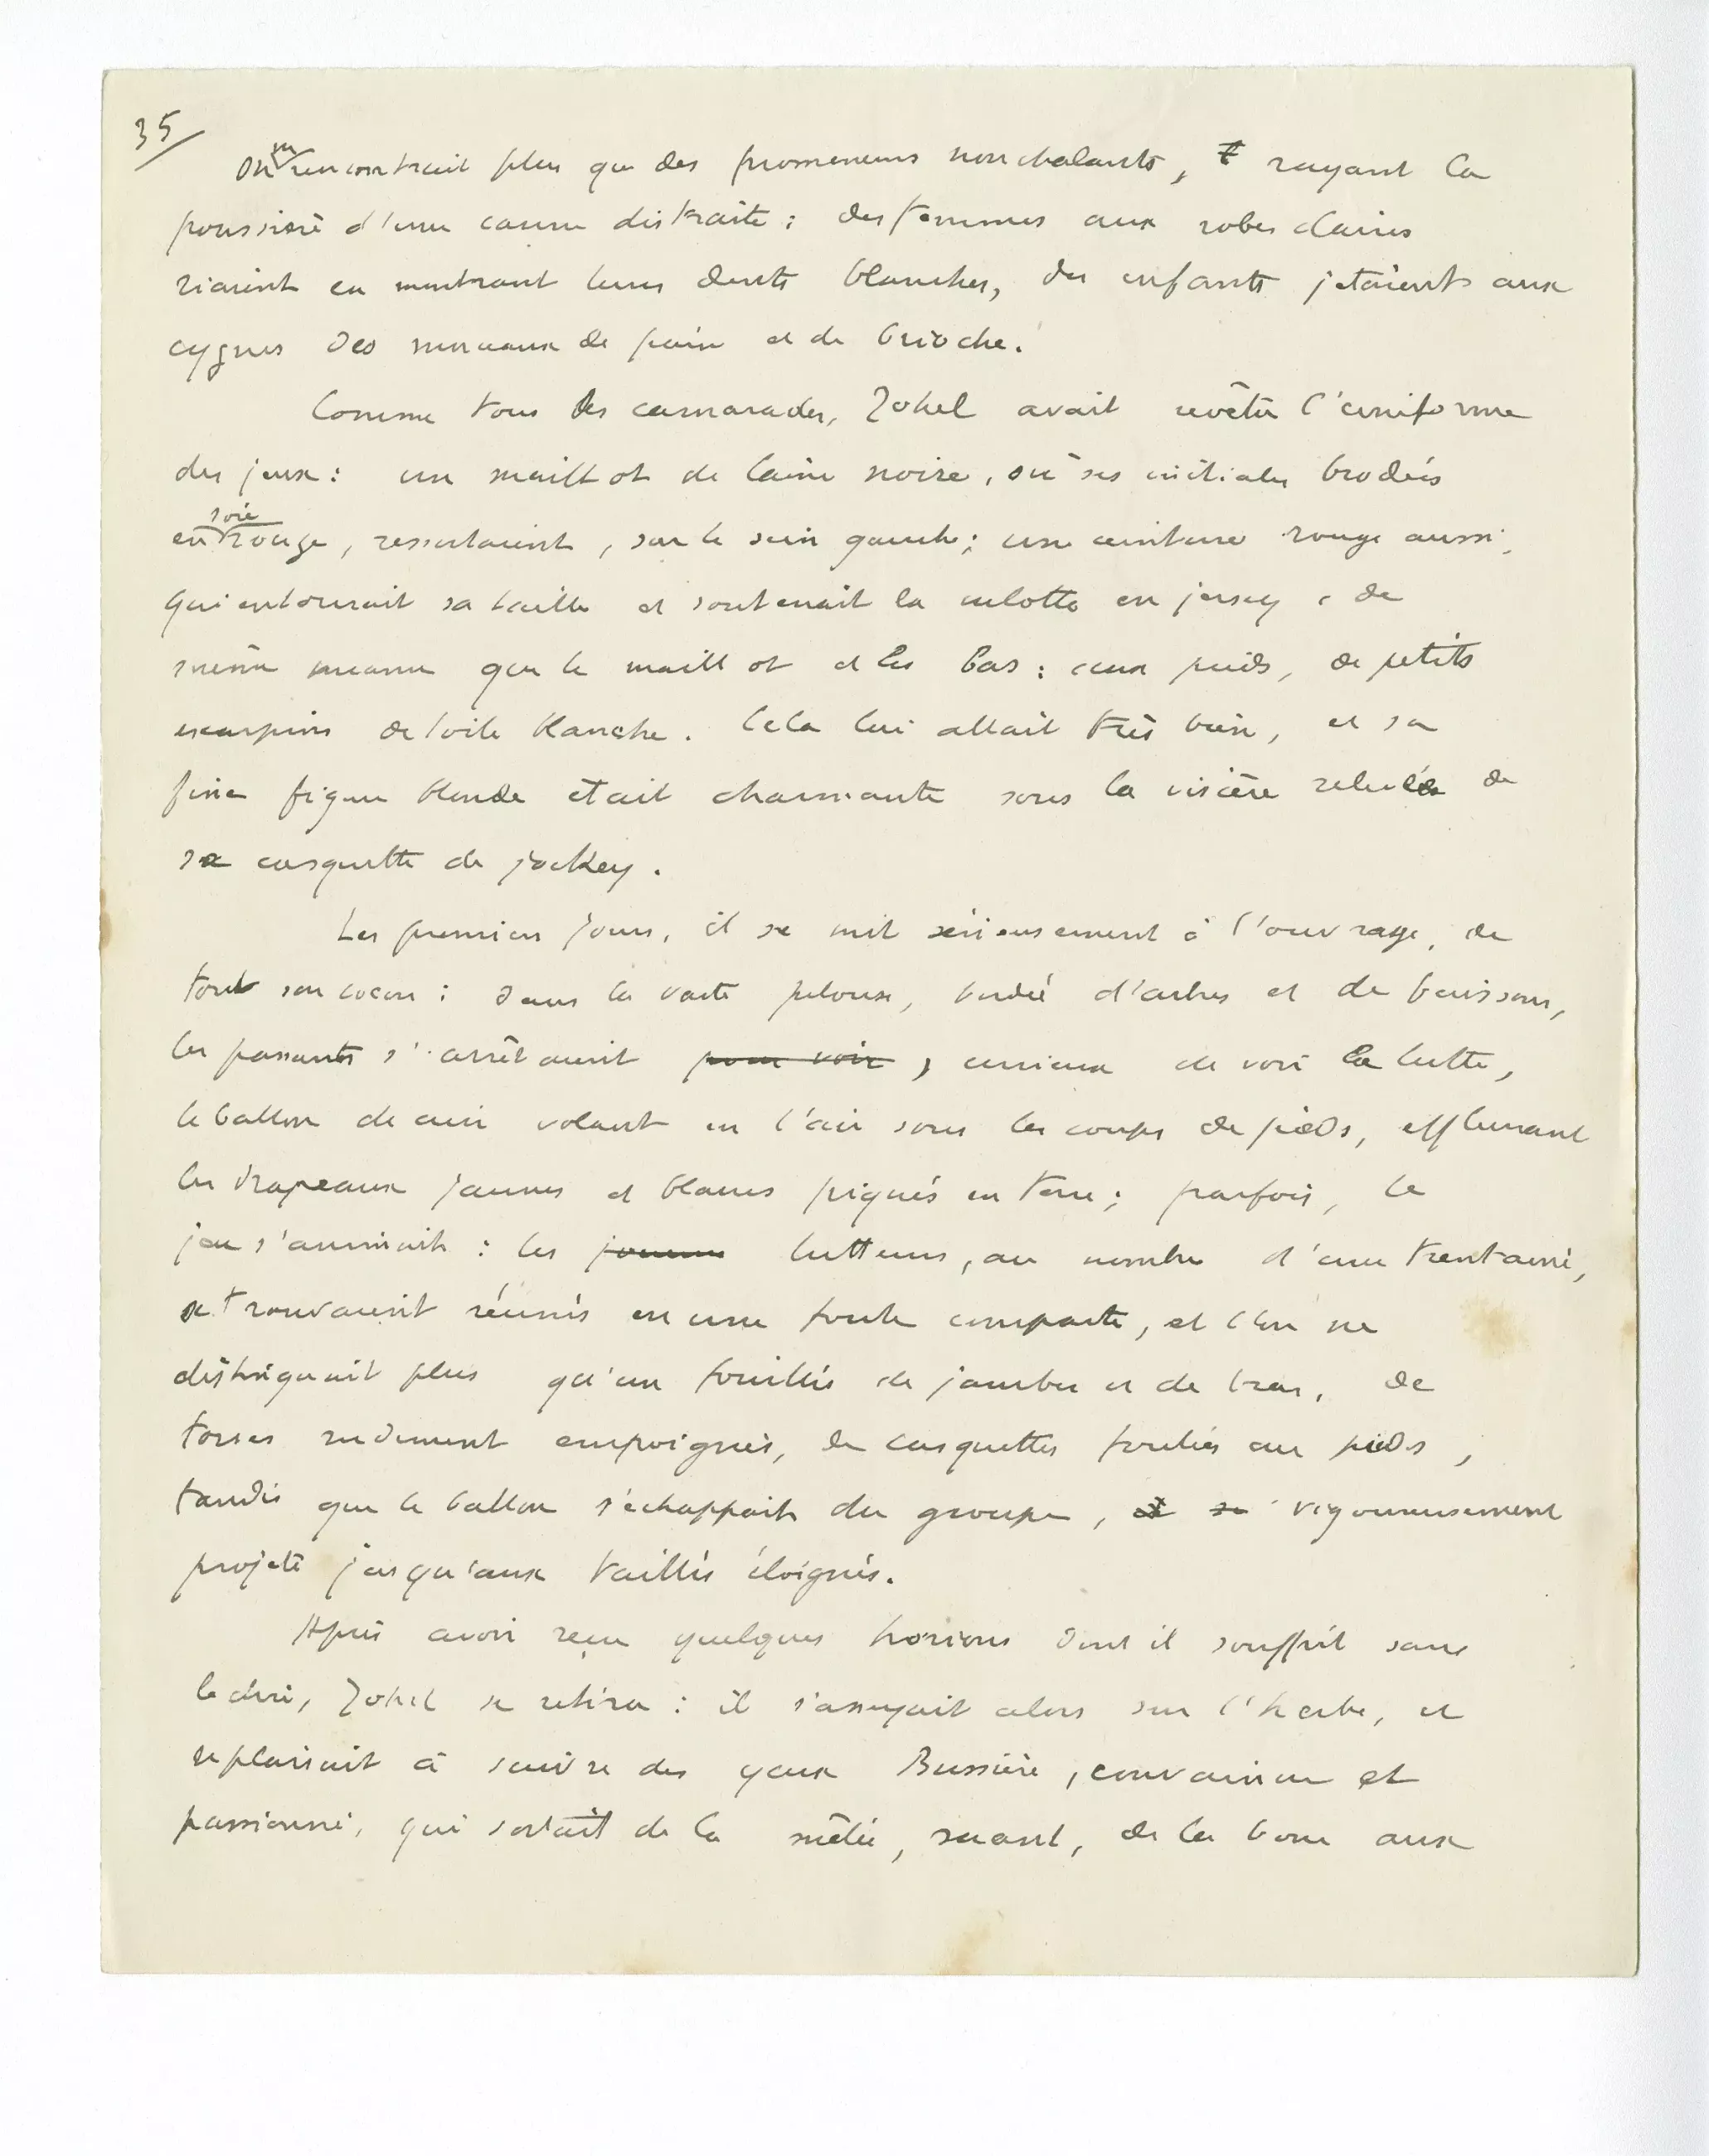 35/
On n'rencontrait plus que des promeneurs nonchalants, rayant la
poussière d'une canne distraite ; des femmes aux robes claires
riaient en montrant leurs dents blanches, des enfants jetaient aux
cygnes des morceaux de pain et de brioche.
Comme tous les camarades, Johel avait revêtu l'uniforme
des jeux : un maillot de laine noire, où ses initiales brodées
en soie rouge, ressortaient, sur le sein gauche ; une ceinture rouge aussi,
qui entourait sa taille et soutenait la culotte en jersey, de
même nuance que le maillot et les bas : aux pieds, de petits
escarpins de toile blanche. Cela lui allait très bien, et sa
fine figure blonde était charmante sous la visière relevée de
sa casquette de jockey.
Les premiers jours, il se mit sérieusement à l'ouvrage, de
tout son coeur : dans la vaste pelouse, bordée d'arbres et de buissons,
les passants s'arrêtaient pour voir, curieux de voir la lutte,
le ballon de cuir volant en l'air sous les coups de pieds, effleurant
les drapeaux jaunes et blancs piqués en terre ; parfois, le
jeu s'animait : les joueurs lutteurs, au nombre d'une trentaine,
se trouvaient réunis en une foule compacte, et l'on ne
distinguait plus qu'un fouillis de jambes et de bras, de
torses rudement empoignés, de casquettes foulées aux pieds,
tandis que le ballon s'échappait du groupe, et se vigoureusement
projeté jusqu'aux taillis éloignés.
Après avoir reçu quelques horions dont il souffrit sans
le dire, Johel se retira : il s'asseyait alors sur l'herbe, et
se plaisait à suivre des yeux Bussière, convaincu et
passionné, qui sortait de la mêlée, suant, de la boue aux